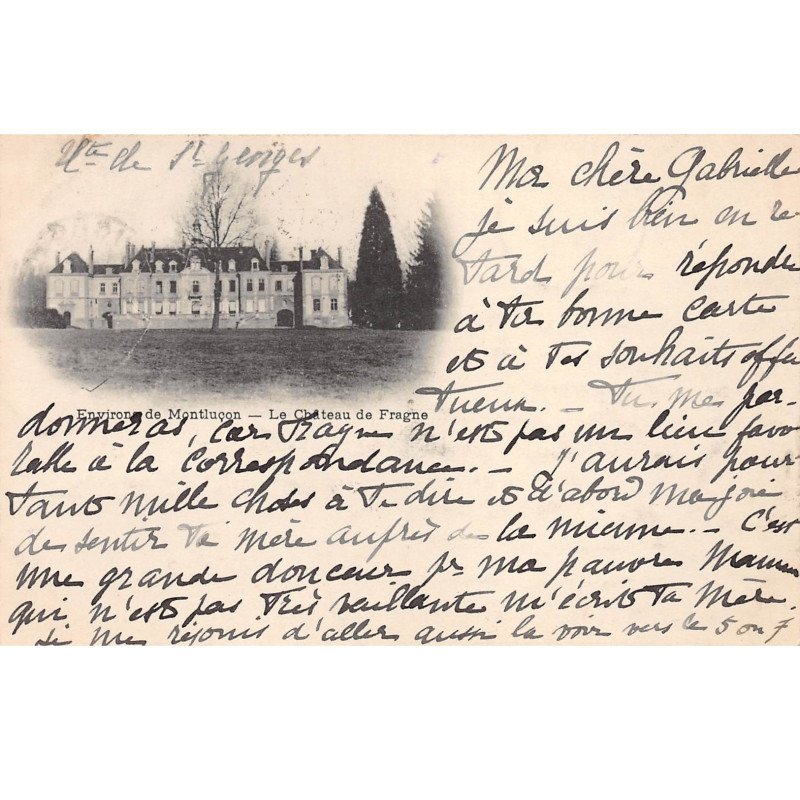 Vte de St Georges
Ma chère Gabrielle
je suis bien en re
tard pour répondre
à ta bonne carte
et à tes souhaits affec
tueux. – Tu me par-
Environs de Montluçon — Le Château de Fragne
donneras, car Fragne n'est pas un lieu favo
rable à la correspondance. – J'aurais pour
tant mille choses à te dire et d'abord ma joie
de sentir ta mère auprès de la mienne. – C'est
une grande douceur pr ma pauvre Maman
qui n'est pas très vaillante m'écrit ta Mère.
Je me réjouis d'aller aussi la voir vers le 5 ou 7